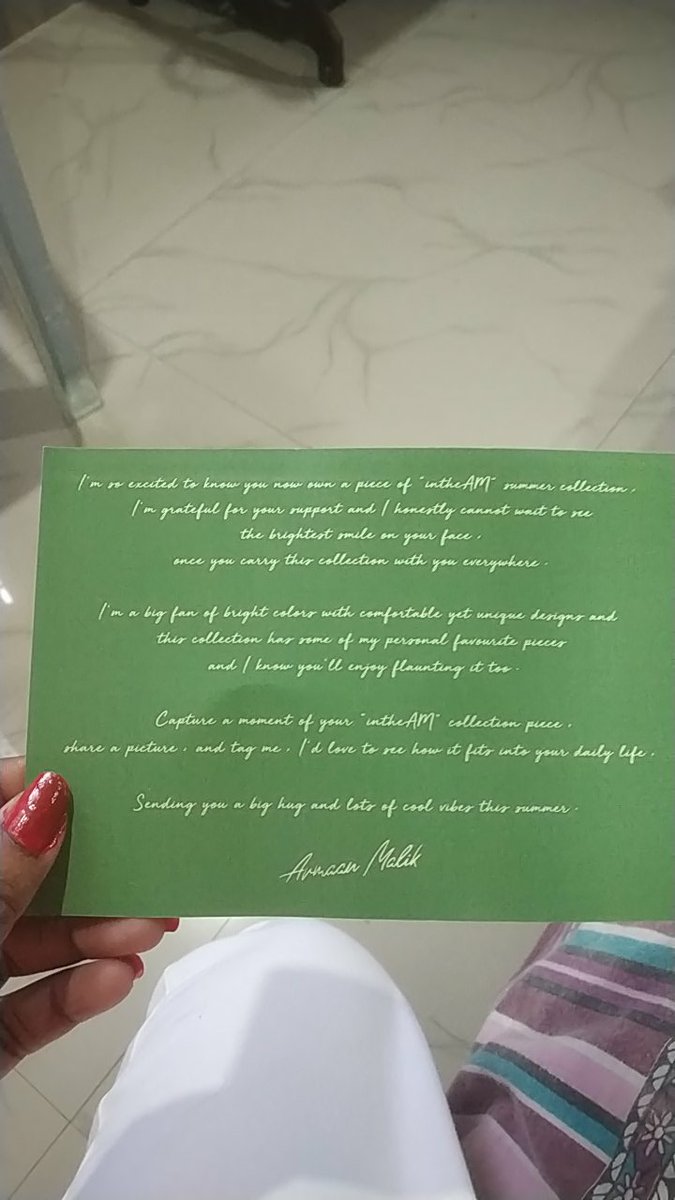 I'm so excited to know you now own a piece of "intheAM" summer collection.
I'm grateful for your support and I honestly cannot wait to see
the brightest smile on your face,
once you carry this collection with you everywhere.
I'm a big fan of bright colors with comfortable yet unique designs and
this collection has some of my personal favourite pieces
and I know you'll enjoy flaunting it too.
Capture a moment of your "intheAM" collection piece,
share a picture, and tag me, I'd love to see how it fits into your daily life.
Sending you a big hug and lots of cool vibes this summer.
Armaan Malik